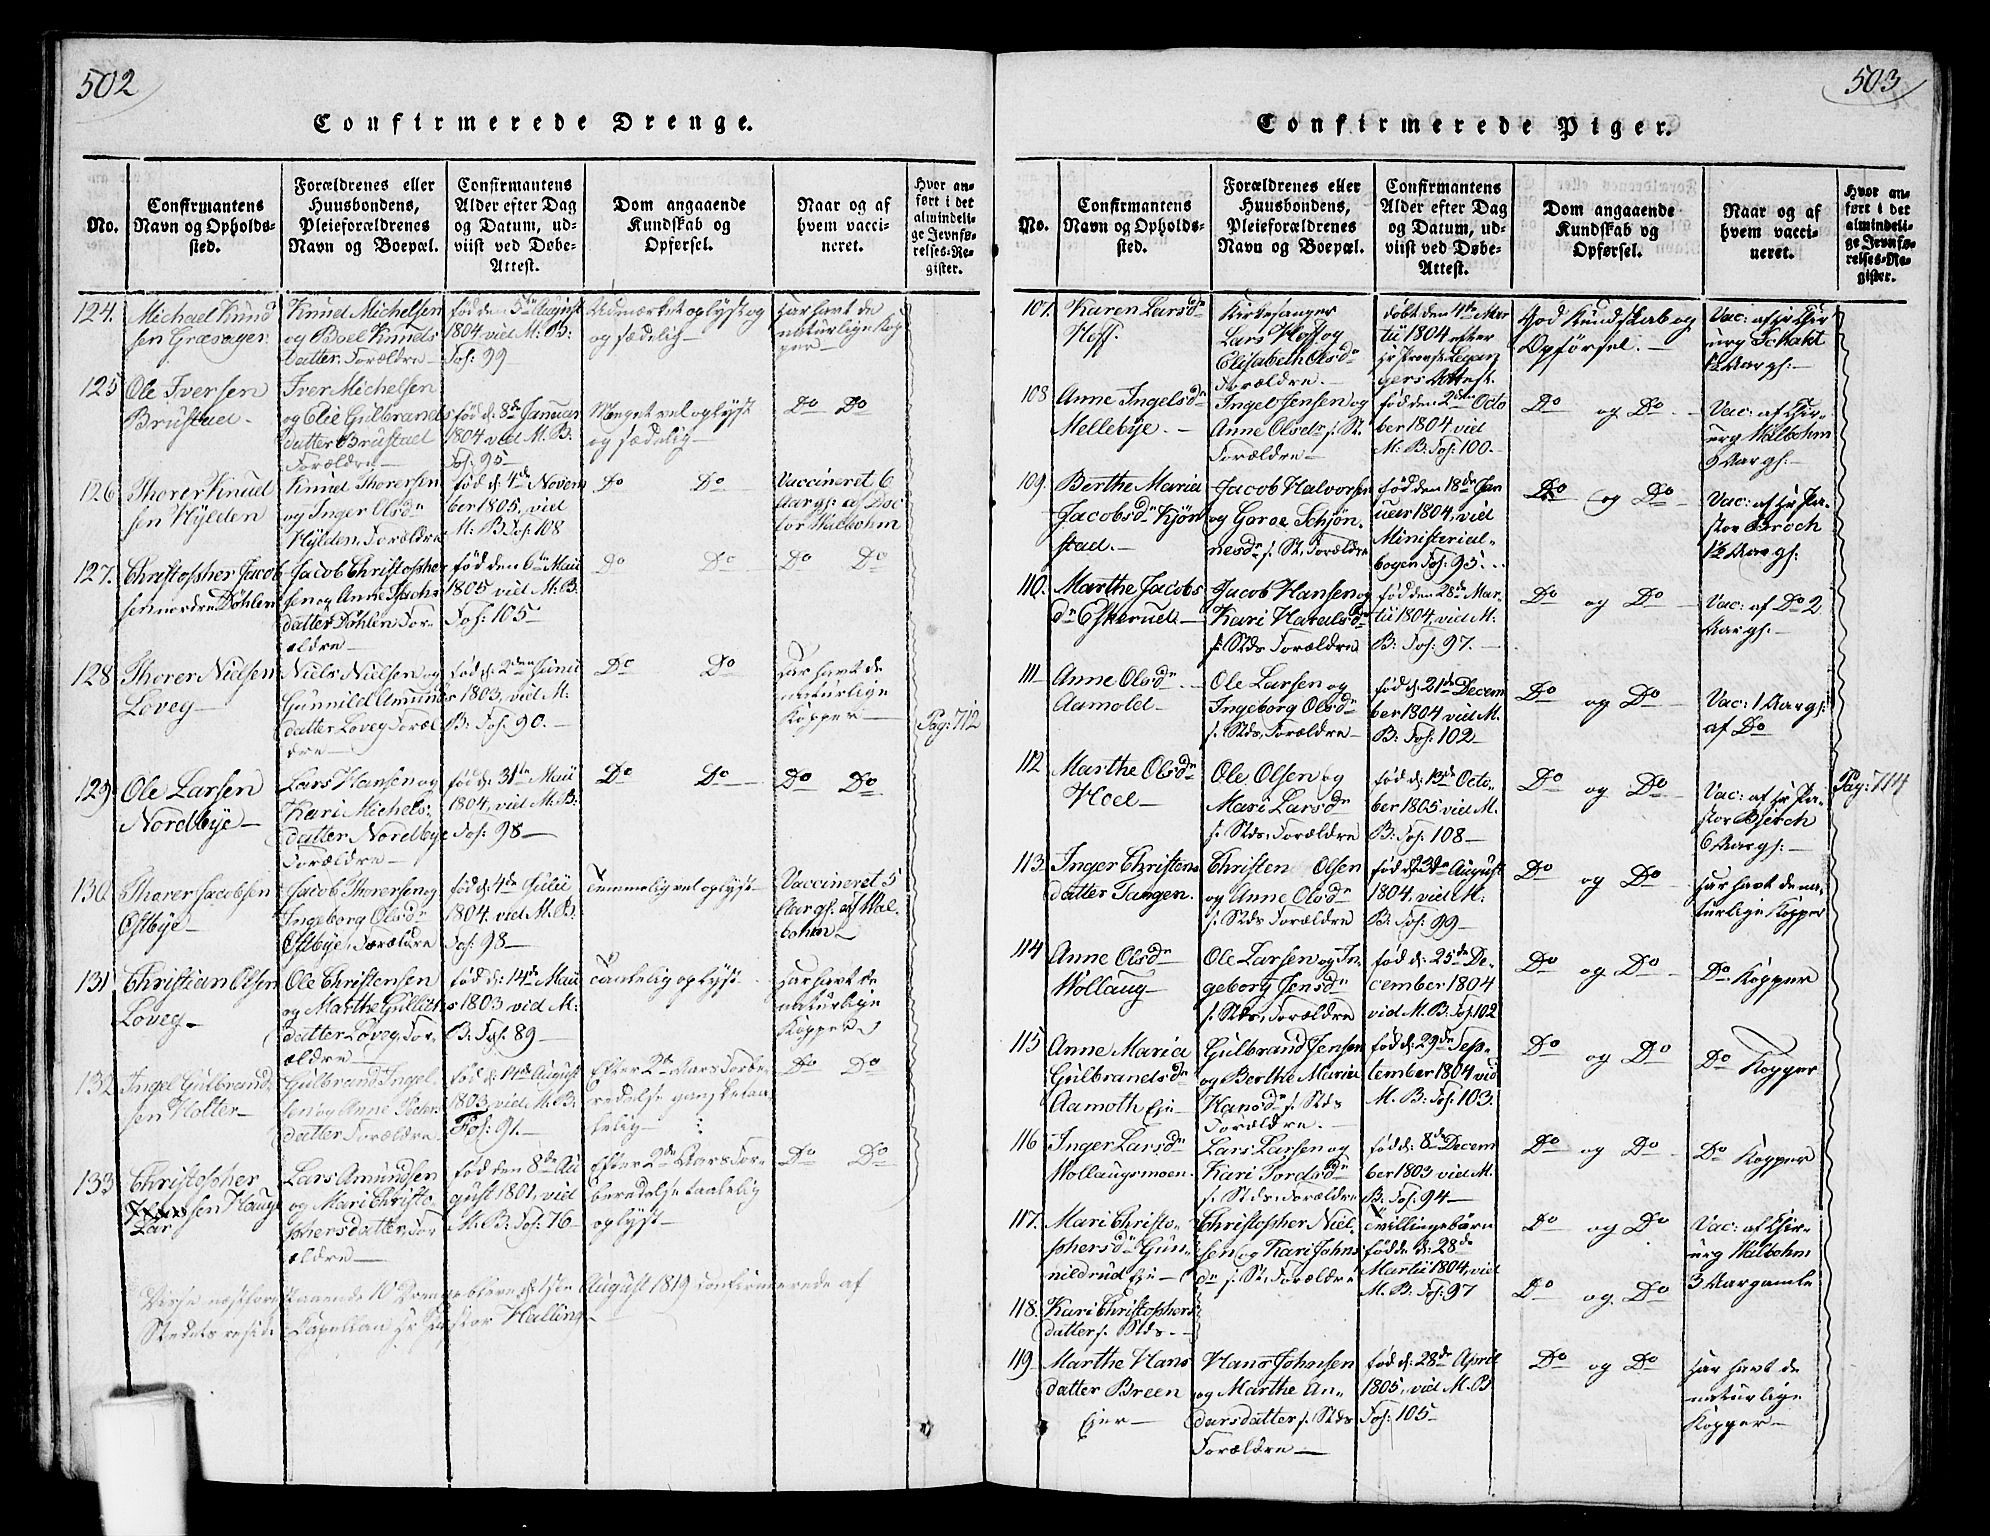 502
Confirmerede Drenge.
No.
Confirmantens
Navn og Opholds-
sted.
Forældrenes eller
Huusbondens,
Pleieforældrenes
Navn og Boepæl.
Confirmantens
Alder efter Dag
og Datum, ud-
viist ved Døbe-
Attest.
Dom angaaende
Kundskab og
Opførsel.
Naar og af
hvem vacci-
neret.
Hvor an-
ført i det
almindeli-
ge Jevnfø-
relses-Re-
gister.
124.
Michael Knud
sen Græsager
Knud Michelsen
og Boel Knuds
datter. Forældre
fød den 5te August
1804 vid M. B:
Fol: 99
Udmærket oplyst og
og sædelig
Har havt de
naturlige Kop
per
125
Ole Iversen
Brustad.
Iver Michelsen
og Elie Gulbrands
datter Brustad
Forældre
fød d: 8de Januar
1804 vid M. B:
Fol: 95
Meget vel oplyst
og sædelig
Do Do
126
Thorer Knud
sen Hylden
Knud Thorersen
og Inger Olsdr
Hylden, Forældre
fød d: 4de Novem
ber 1805, vid
M. B. Fol: 108
Do Do
Vaccineret 6
Aargl: af Doc
tor Walbohm
127.
Christopher Jacob
sen nordre Døhlen
Jacob Christopher
sen og Anne Isachs
datter Døhlen For-
ældre
fød den 6te Maii
1805 vid M. B.
Fol: 105
Do Do
Do Do
128
Thorer Nielsen
Løveg
Niels Nielsen og
Gunnild Amunds
datter Løveg Foræl
dre
fød d: 2den Junii
1803, vid M.
B: Fol: 90.
Do Do
Har havt de
naturlige
Kopper
Pag: 712
129
Ole Larsen
Nordbye
Lars Hansen og
Kari Michels-
datter Nordbye
Forældre
fød d: 31te Maii
1804, vid M. B:
Fol: 98
Do Do
Do Do
130
Thorer Jacobsen
Østbye
Jacob Thorersen og
Ingeborg Olsdr
Østbye, Forældre
fød d: 4de Julii
1804. vid M. B.
Fol: 98
Temmelig vel oplyst
Vaccineret 5
Aargl: af Wal-
bohm
131
Christian Olsen
Løveg
Ole Christensen
og Marthe Gulliks
datter Løveg, For-
ældre
fød d: 14de Maii
1803 vid M:
B: Fol: 89
Taalelig oplyst
Har havt de
naturlige
Kopper
132
Ingel Gulbrand
sen Holter
Gulbrand Ingel-
sen og Anne Peders
datter Forældre
fød d: 14de August
1803, vid M. B.
Fol: 91.
Efter 2de Aars Forbe-
redelse ganske taa-
lelig
Do Do
133
Christopher
Larsen Hauge
Lars Amundsen
og Mari Christo-
phersdatter, For-
ældre
fød den 8de Au
gust 1801, vid
M. B: Fol: 76
Efter 2de Aars For-
beredelse taalelig
oplyst
Do Do
Disse næstforestaaende 10 Drenge bleve d: 15de August 1819 confirmerede af
Stedets resid: Capellan Hr Pastor Halling
503
Confirmerede Piger.
No.
Confirmantens
Navn og Opholds-
sted.
Forældrenes eller
Huusbondens,
Pleieforældrenes
Navn og Boepæl.
Confirmantens
Alder efter Dag
og Datum, ud-
viist ved Døbe-
Attest.
Dom angaaende
Kundskab og
Opførsel.
Naar og af
hvem vacci-
neret.
Hvor an-
ført i det
almindeli-
ge Jevnfø-
relses-Re-
gister.
107.
Karen Larsdr
Hoff.
Kirkesanger
Lars Hoff og
Elisabeth Olsdr
Forældre.
døbt den 4de Mar
tii 1804 efter
Hr Provst Legan
gers Attest.
God Kundskab og
Opførsel.
Vac: af Hr Chir
urg Schakt
1½ Aargl:
108
Anne Ingelsdr
Mellebye.
Ingel Jensen og
Anne Olsdr s. St.
Forældre
fød den 2den Octo
ber 1804 vid
M. B: Fol: 100.
Do og Do
Vac: af Chir-
urg Walbohm
9 Aargl:
109.
Berthe Maria
Jacobsdr Kjøn
stad.
Jacob Halvorsen
og Goroe Schjøn-
nesdr s. St. Forældre
fød den 18de Ja
nuar 1804, vid
Ministerial-
bogen Fol: 95.
Do og Do
Vac: af Hr Pa-
stor Broch
1½ Aargl:
110.
Marthe Jacobs
dr Eskerud
Jacob Hansen og
Kari Haraldsdr
s. Stds Forældre
fød den 28de Mar-
tii 1804, vid M:
B: Fol: 97.
Do og Do
Vac: af Do 2
Aargl.
111
Anne Olsdr
Aamold
Ole Larsen og
Ingeborg Olsdr
s. Stds, Forældre
fød d: 21de Decem
ber 1804 vid M.
B: Fol: 102
Do og Do
Vac: 1 Aargl:
af Do
112
Marthe Olsdr
Hoel
Ole Olsen og
Mari Larsdr
s. Stds, Forældre
fød d: 13de Octo-
ber 1805 vid M.
B: Fol: 108
Do og Do
Vac: af Hr Pa-
stor Broch
6 Aargl:
Pag: 714
113.
Inger Christens
datter Tangen.
Christen Olsen
og Anne Olsdr
s. Stds Forældre
fød d: 23de August
1804, vid M:
B: Fol: 99
Do og Do
Har havt de na-
turlige Kopper
114
Anne Olsdr
Wollaug
Ole Larsen og In-
geborg Jensdr
s. Stds, Forældre
fød d: 25de De-
cember 1804
vid M. B: Fol: 102
Do og Do
Do Kopper
115
Anne Maria
Gulbrandsdr
Aamoth Eje
Gulbrand Jensen
og Berthe Maria
Hansdr s. Stds
Forældre.
fød d: 29de Sep-
tember 1804 vid
M. B: Fol: 103.
Do og Do
Do Kopper
116
Inger Larsdr
Wollaugsmoen.
Lars Larsen og
Kari Tordsdr
s. Stds, Forældre
fød d: 8de Decem
ber 1803 vid M.
B: Fol: 94
Do og Do
Do Kopper
117.
Mari Christo-
phersdr Gun-
nildrud Eje
Christopher Niel-
sen og Kari Johns
dr s. St: Forældre
Tvillingebørn
fødde d: 28de
Martii 1804, vid
M. B: Fol: 97
Do og Do
Vac: af Chir-
urg Walbohm
3 Aar gamle
118.
Kari Christophers
datter s. Stds.
Do og Do
119.
Marthe Hans
datter Breen
Ejer
Hans Johnsen
og Marthe An-
dersdatter s. Stds
Forældre
fød d: 28de April
1805, vid M. B
Fol: 105
Do og Do
Har havt de
naturlige
Kopper